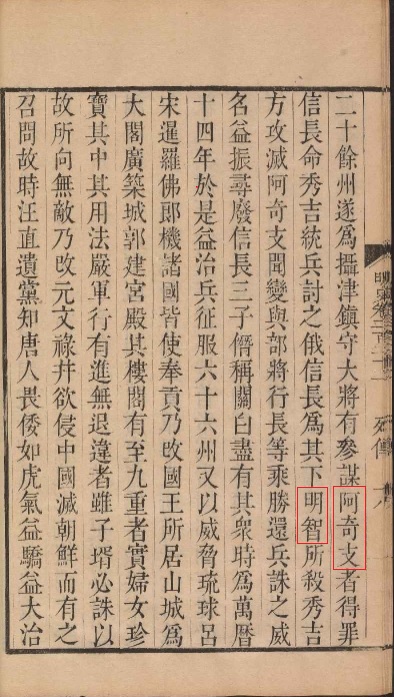 二十餘州遂為攝津鎮守大將有參謀阿奇支者得罪
信長命秀吉統兵討之俄信長為其下明智所殺秀吉
方攻滅阿奇支聞變與部將行長等乘勝還兵誅之威
名益振尋廢信長三子僭稱關白盡有其衆時為萬曆
十四年於是益治兵征服六十六州又以威脅琉球呂
宋暹羅佛郎機諸國皆使奉貢乃改國王所居山城為
大閣廣築城郭建宮殿其樓閣有至九重者實婦女珍
寶其中其用法嚴軍行有進無退違者雖子壻必誅以
故所向無敵乃改元文祿幷欲侵中國滅朝鮮而有之
召問故時汪直遺黨知唐人畏倭如虎氣益驕益大治